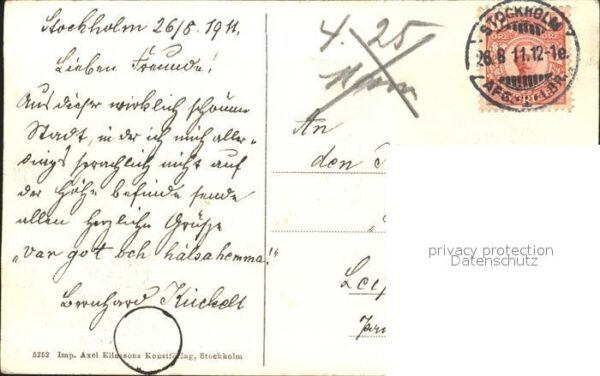 Stockholm 26/8. 1911.
Lieben Freunde!
Aus dieser wirklich schönen
Stadt, in der ich mich aller-
dings sprachlich nicht auf
der Höhe befinde sende
allen herzliche Grüsse
"Var got och hälsahemma!"
Bernhard Kuckelt
5252 Imp. Axel Eliassons Konstförlag, Stockholm
4. 25
An
den
Leip
STOCKHOLM
26.8 11.12-1e.
ÖRE ÖRE
privacy protection
Datenschutz